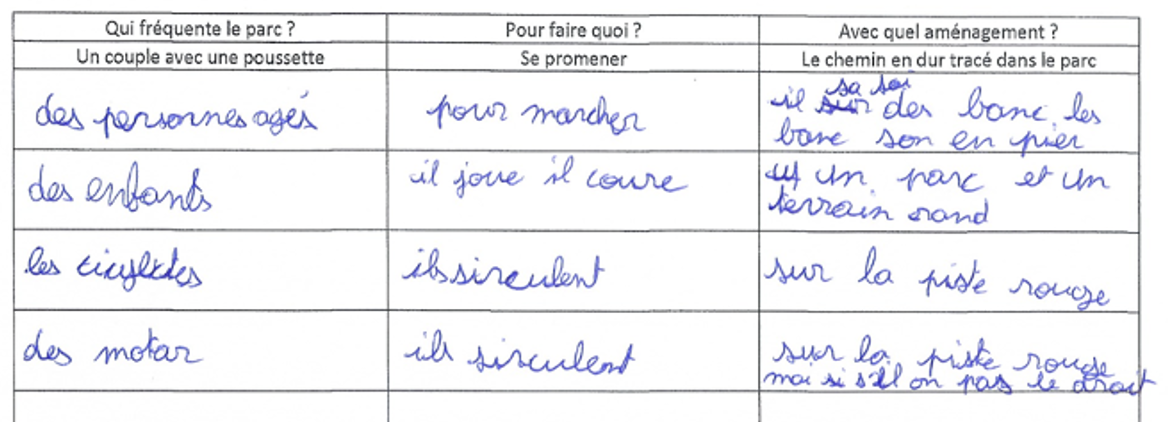 Qui fréquente le parc ? Pour faire quoi ? Avec quel aménagement ?
Un couple avec une poussette Se promener Le chemin en dur tracé dans le parc
des personnes agés pour marcher il sa soi des banc les
banc son en pier
des enfants il joue il coure un parc et un
terrain rand
les ils sirculent sur la piste rouge
des motar ils sirculent sur la piste rouge
mai si s'il on pas le droit